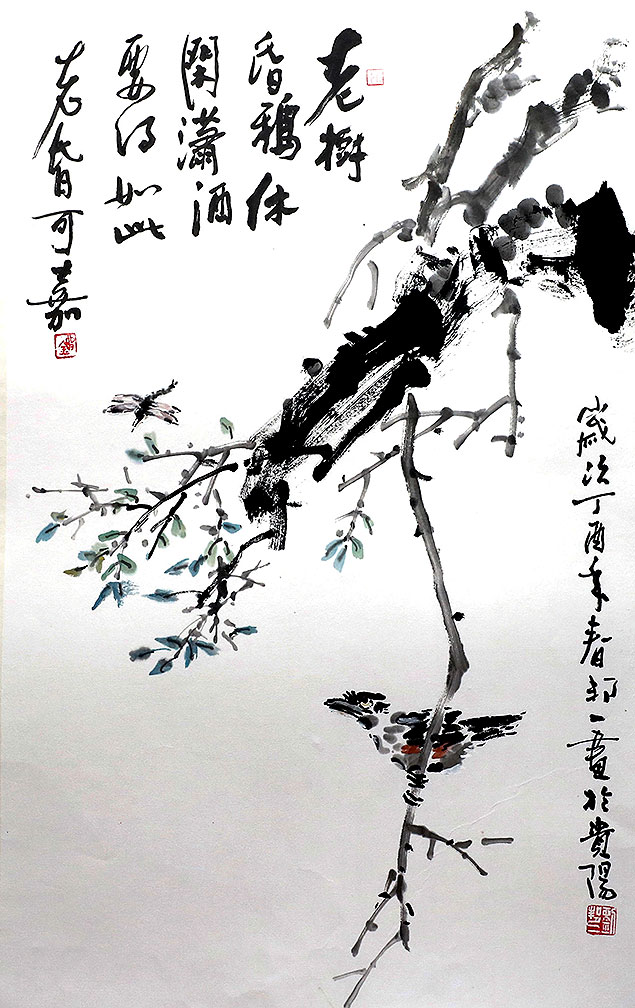 老樹
昏鴉休
閑瀟洒
要得如此
老昏可嘉
歲次丁酉年春一畫於貴陽